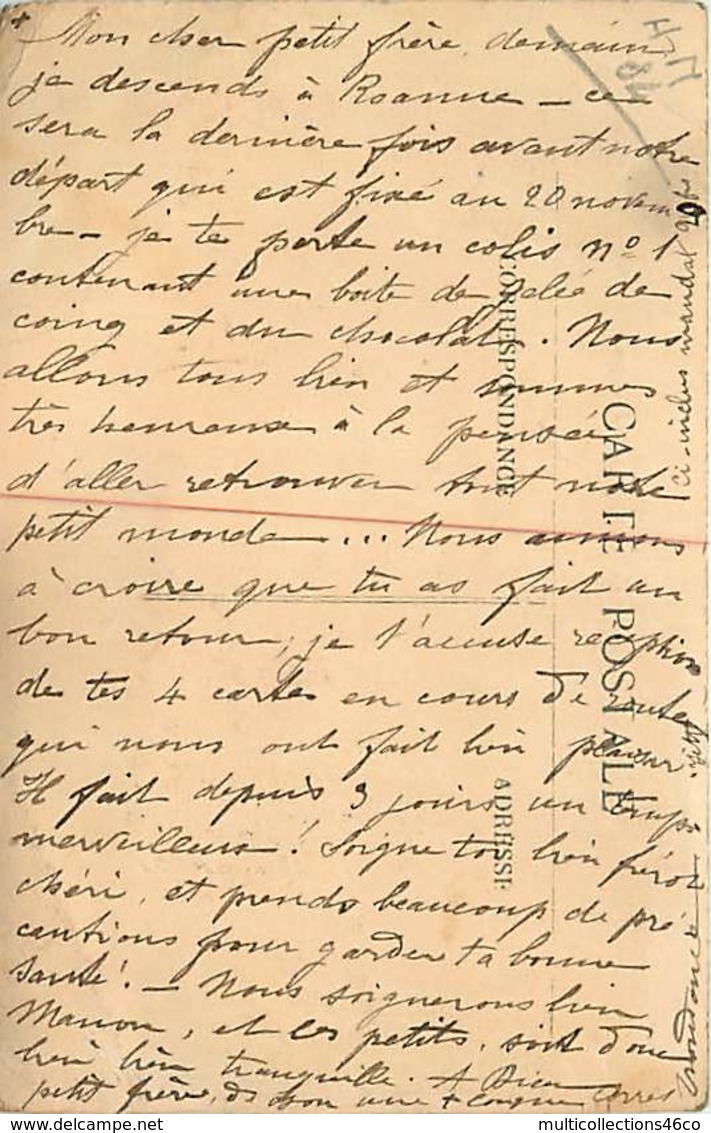 Mon cher petit frère, demain
je descends à Roanne – ce
sera la dernière fois avant notre
départ qui est fixé au 20 novem
bre – je te porte un colis n° 1
contenant une boite de gelée de
coing et du chocolat. Nous
allons tous bien et sommes
très heureux à la pensée
d'aller retrouver tout notre
petit monde ... Nous aimons
à croire que tu as fait un
bon retour ; je t'accuse réception
de tes 4 cartes en cours de route
qui nous ont fait bien plaisir
Il fait depuis 3 jours un temps
merveilleux ! Soigne toi bien frérot
chéri, et prends beaucoup de pré
cautions pour garder ta bonne
santé ! – Nous soignerons bien
Manon, et les petits, sois donc
bien bien tranquille. A Dieu
petit frère, + longue corres
pondance
Ci-inclus mandat
CARTE POSTALE
CORRESPONDANCE
ADRESSE
multicollections46co